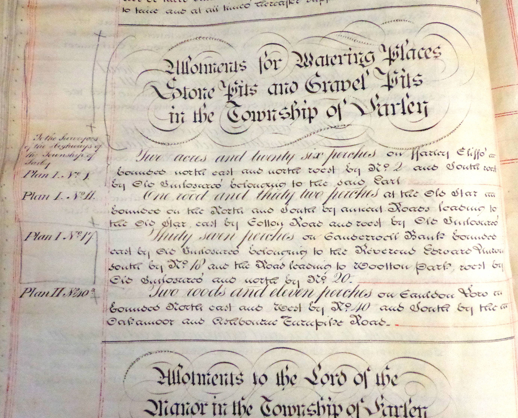 to time and at all times
Allotments for Watering Places
Stone Pits and Gravel Pits
in the Township of Farley
To the Surveyors
of the Highways of
the Township of
Farley
Plan I. No. 1
Two acres and twenty six perches on Farley Cliffs
bounded north east and north west by No. 2 and South west
by Old Inclosures belonging to the said Earl
Plan I. No. 11.
One rood and thirty two perches at the Old Star
bounded on the North and South by annual Roads leading to
the Old Star east by Cotton Road and west by Old Inclosures
Plan I No. 17
Thirty seven perches on Bank bounded
east by Old Inclosures belonging to the Reverend Edward
south by No. 16 and the Road leading to Wootton Park west by
Old Inclosures and north by No. 20.
Plan II No. 40
Two roods and eleven perches on Cauldon Low
bounded North east and West by No. 40 and South by the
Oakamoor and Ashbourne Turnpike Road.
Allotments to the Lord of the
Manor in the Township of Farley